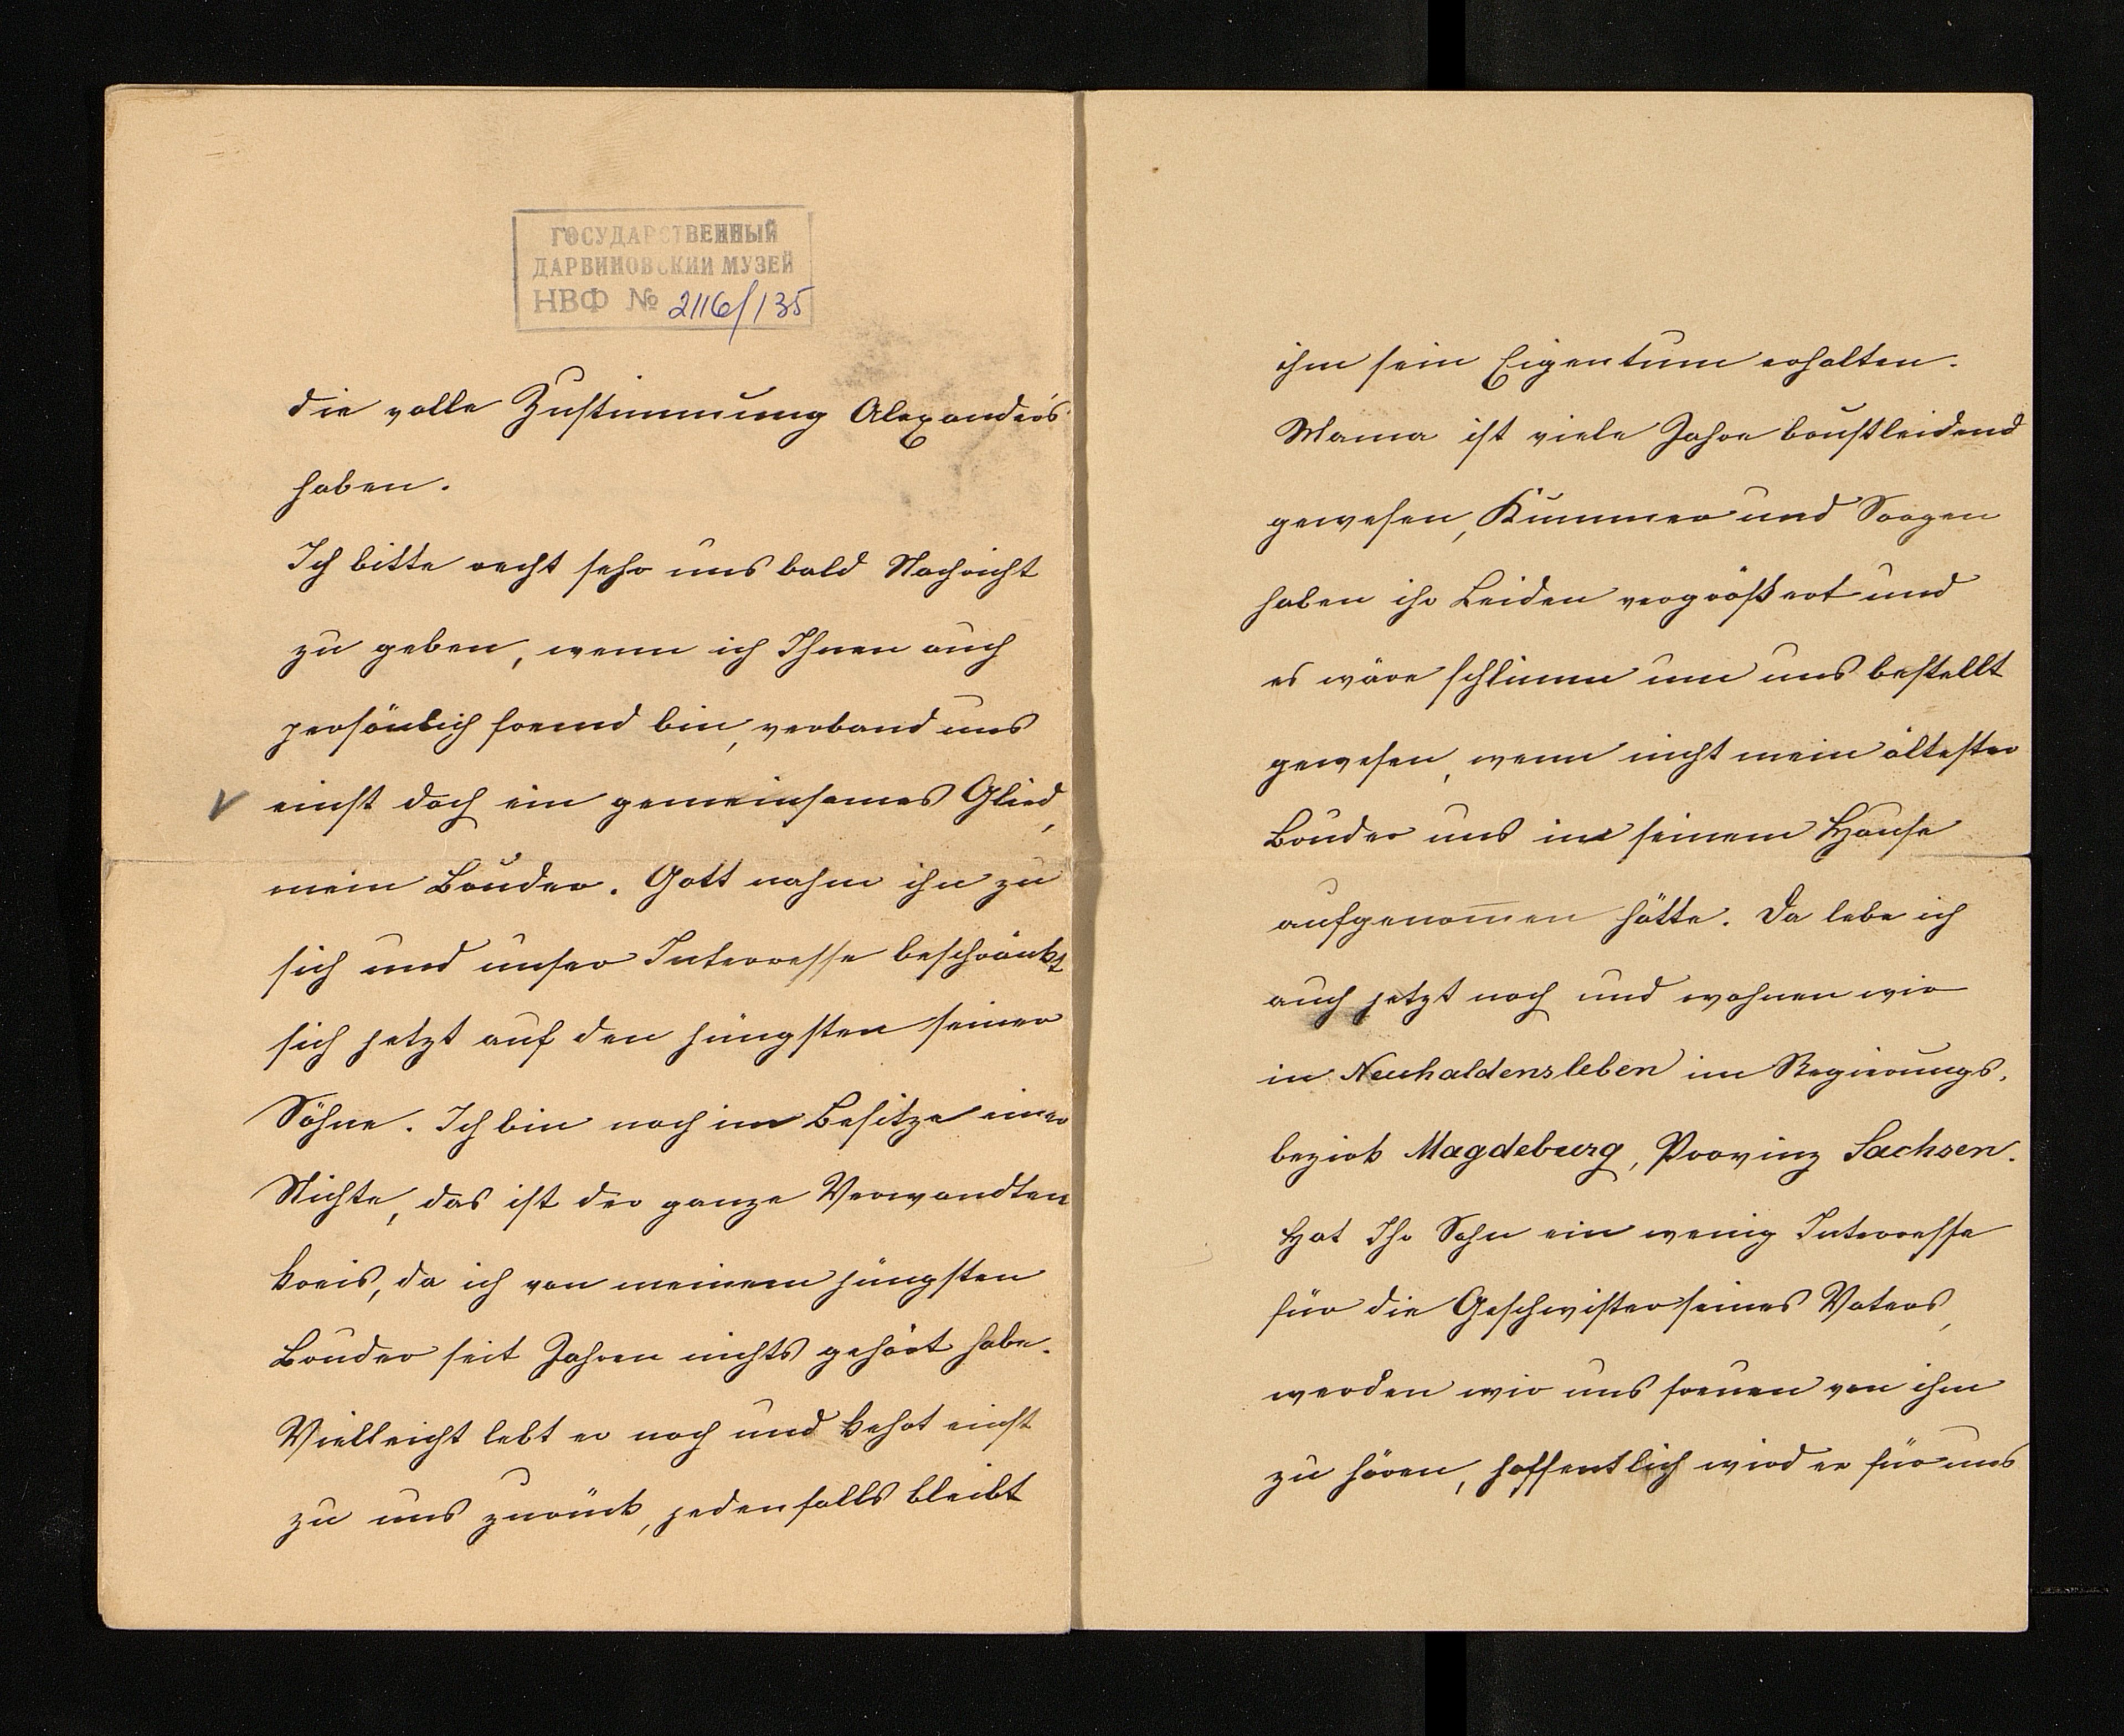 ГОСУДАРСТВЕННЫЙ
ДАРВИНОВСКИЙ МУЗЕЙ
НВФ № 2116/135
die volle Zustimmung Alexander's
haben.
Ich bitte recht sehr uns bald Nachricht
zu geben, wenn ich Ihnen auch
persönlich fremd bin, verband uns
einst doch ein gemeinsames Glied,
mein Bruder. Gott nahm ihn zu
sich und unser Interresse beschränkt
sich jetzt auf den jüngsten seiner
Söhne. Ich bin noch im Besitze einer
Nichte, das ist der ganze Verwandten
kreis, da ich von meinem jüngsten
Bruder seit Jahren nichts gehört habe.
Vielleicht lebt er noch und kehrt einst
zu uns zurück, jedenfalls bleibt
ihm sein Eigentum erhalten.
Mama ist viele Jahre brustleidend
gewesen, Kummer und Sorgen
haben ihr Leiden vergrößert und
es wäre schlimm um uns bestellt
gewesen, wenn nicht mein ältester
Bruder uns in seinem Hause
aufgenom̅en hätte. Da lebe ich
auch jetzt noch und wohnen wir
in Neuhaldensleben im Regierungs-
bezirk Magdeburg, Provinz Sachsen.
Hat Ihr Sohn ein wenig Interresse
für die Geschwister seines Vaters,
werden wir uns freuen von ihm
zu hören, hoffentlich wird er für uns